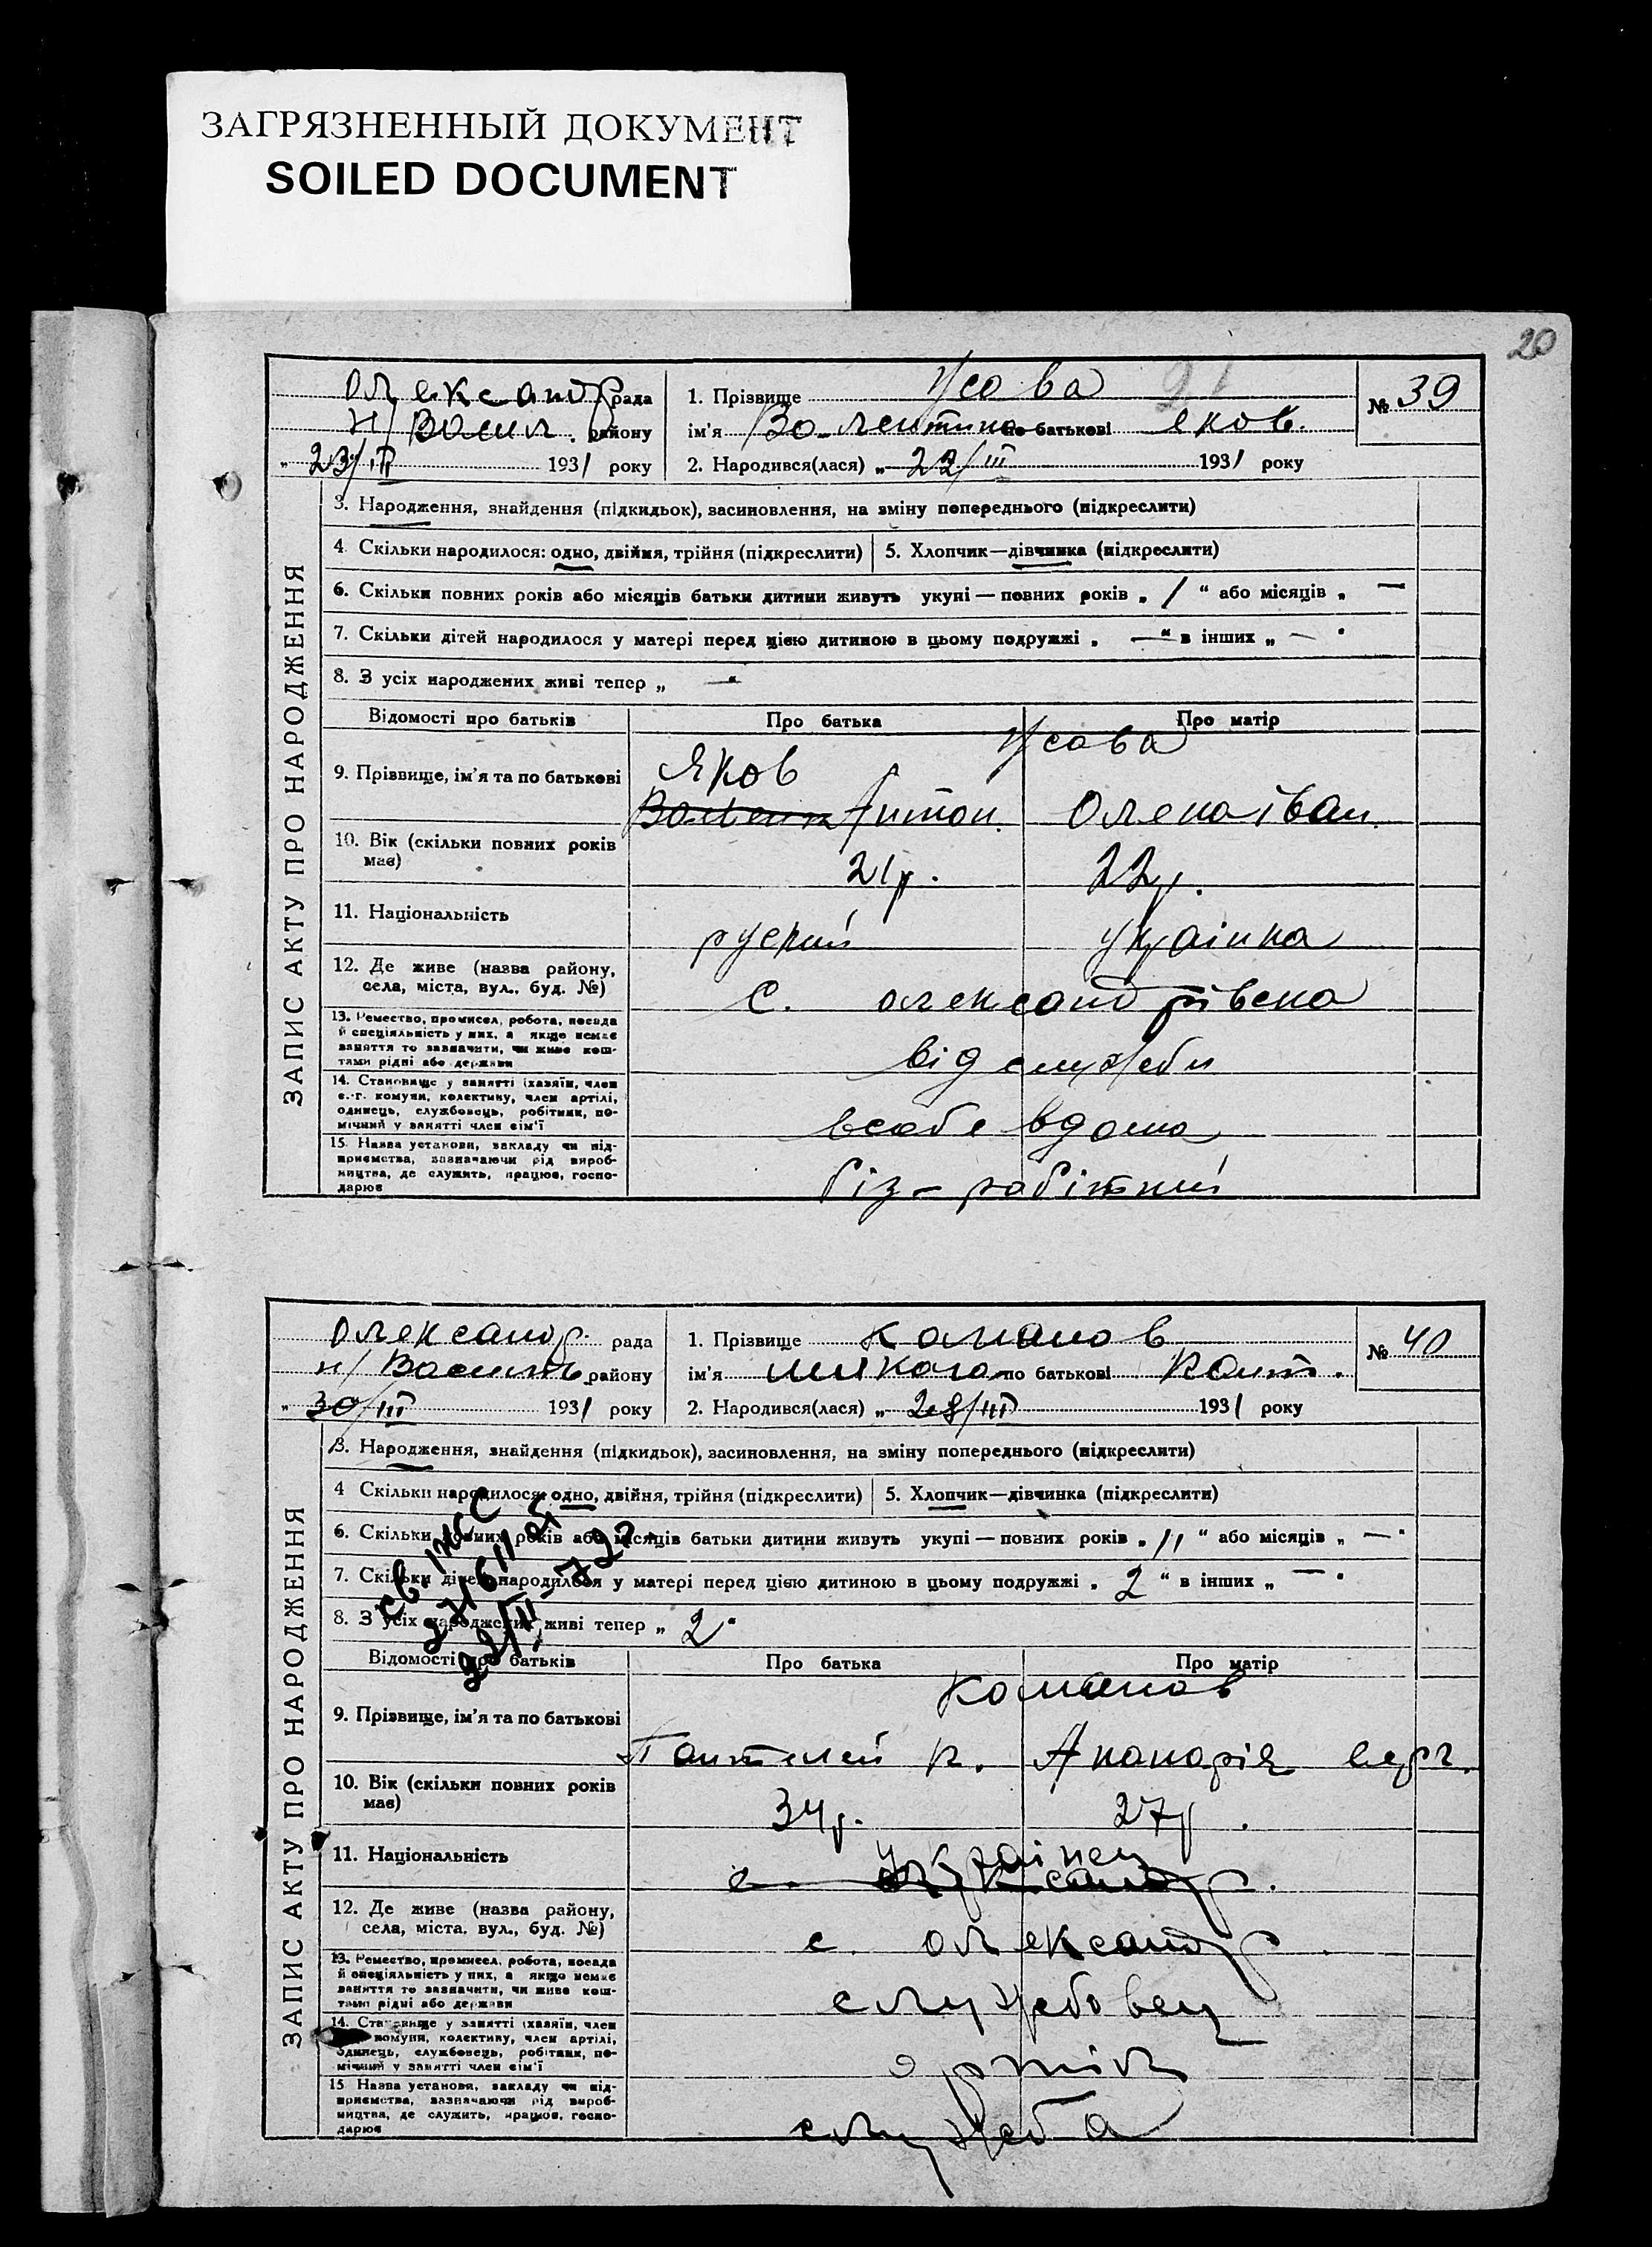 ЗАГРЯЗНЕННЫЙ ДОКУМЕНТ
SOILED DOCUMENT
20
ЗАПИС АКТУ ПРО НАРОДЖЕННЯ
Олександр рада
Н/Васил. району
„ 23/III 1931 року
1. Прізвище Усова
ім'я Валентина по батькові Яков.
2. Народився(лася) „ 22/III 1931 року
№ 39
3. Народження, знайдення (підкидьок), засиновлення, на зміну попереднього (підкреслити)
4. Скільки народилося: одно, двійня, трійня (підкреслити) 5. Хлопчик—дівчинка (підкреслити)
6. Скільки повних років або місяців батьки дитини живуть укупі — повних років „ 1 “ або місяців „ —
7. Скільки дітей народилося у матері перед цією дитиною в цьому подружжі „ — “ в інших „ — “
8. З усіх народжених живі тепер „ — “
Відомості про батьків Про батька Про матір
Усова
9. Прізвище, ім'я та по батькові Яков
Антон. Олена Іван.
10. Вік (скільки повних років має) 21р. 22р.
11. Національність руский українка
12. Де живе (назва району, села, міста, вул., буд. №) с. Олександрівська
13. Ремество, промисел, робота, посада й спеціяльність у них, а якщо немає заняття то зазначити, чи живе коштами рідні або держави
від служби
14. Становище у занятті (хазяїн, член с.-г. комуни, колективу, член артілі, одинець, службовець, робітник, помічний у занятті член сім'ї
вдома
15. Назва установи, закладу чи підприємства, зазначаючи рід виробництва, де служить, працює, господарює
біз-рабітний
ЗАПИС АКТУ ПРО НАРОДЖЕННЯ
Олександр. рада
н/Василь району
„ 30/III 1931 року
1. Прізвище
ім'я Микола по батькові Пант.
2. Народився(лася) „ 28/III 1931 року
№ 40
3. Народження, знайдення (підкидьок), засиновлення, на зміну попереднього (підкреслити)
4 Скільки народилося: одно, двійня, трійня (підкреслити) 5. Хлопчик—дівчинка (підкреслити)
6. Скільки повних років або місяців батьки дитини живуть укупі — повних років „ 11 “ або місяців „ — “
7. Скільки дітей народилося у матері перед цією дитиною в цьому подружжі „ 2 “ в інших „ — “
8. З усіх народжених живі тепер „ 2 “
Відомості про батьків Про батька Про матір
9. Прізвище, ім'я та по батькові Пантилей К.
10. Вік (скільки повних років має) 34р. 27р.
11. Національність українец
12. Де живе (назва району, села, міста, вул., буд. №) с. Олександр
13. Ремество, промисел, робота, посада й спеціяльність у них, а якщо немає заняття то зазначити, чи живе коштами рідні або держави
службовец
14. Становище у занятті (хазяїн, член с.-г. комуни, колективу, член артілі, одинець, службовець, робітник, помічний у занятті член сім'ї
15 Назва установи, закладу чи підприємства, зазначаючи рід виробництва, де служить, працює, господарює
служба